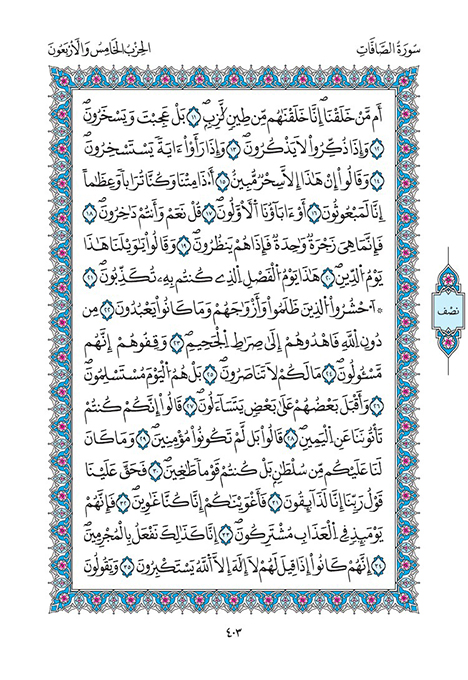 سُورَةُ الصَّافَّاتِ
الحِزْبُ الخَامِسُ وَالْأَرْبَعُونَ
أَم مَّنْ خَلَقْنَا إِنَّا خَلَقْنَٰهُم مِّن طِينٍ لَّازِبٍ ١١ بَلْ عَجِبْتَ وَيَسْخَرُونَ
١٢ وَإِذَا ذُكِّرُواْ لَا يَذْكُرُونَ ١٣ وَإِذَا رَأَوْاْ ءَايَةً يَسْتَسْخِرُونَ
١٤ وَقَالُواْ إِنْ هَٰذَا إِلَّا سِحْرٌ مُّبِينٌ ١٥ أَٰ۟ذَا مِتْنَا وَكُنَّا تُرَاباً وَعِظَٰماً
إِنَّا لَمَبْعُوثُونَ ١٦ أَوَءَابَآؤُنَا اَلْأَوَّلُونَ ١٧ قُلْ نَعَمْ وَأَنتُمْ دَٰخِرُونَ ١٨
فَإِنَّمَا هِيَ زَجْرَةٌ وَٰحِدَةٌ فَإِذَا هُمْ يَنظُرُونَ ١٩ وَقَالُواْ يَٰوَيْلَنَا هَٰذَا
يَوْمُ اُلدِّينِ ٢٠ هَٰذَا يَوْمُ اُلْفَصْلِ اِلذِي كُنتُم بِهِۦ تُكَذِّبُونَ ٢١
* اَحْشُرُواْ اُلذِينَ ظَلَمُواْ وَأَزْوَٰجَهُمْ وَمَا كَانُواْ يَعْبُدُونَ ٢٢ مِن
دُونِ اِللَّهِ فَاهْدُوهُمْ إِلَىٰ صِرَٰطِ اِلْجَحِيمِ ٢٣ وَقِفُوهُمْ إِنَّهُم
مَّسْـُٔولُونَ ٢٤ مَا لَكُمْ لَا تَنَاصَرُونَ ٢٥ بَلْ هُمُ اُلْيَوْمَ مُسْتَسْلِمُونَ
٢٦ وَأَقْبَلَ بَعْضُهُمْ عَلَىٰ بَعْضٍ يَتَسَآءَلُونَ ٢٧ قَالُواْ إِنَّكُمْ كُنتُمْ
تَأْتُونَنَا عَنِ اِلْيَمِينِ ٢٨ قَالُواْ بَل لَّمْ تَكُونُواْ مُؤْمِنِينَ ٢٩ وَمَا كَانَ
لَنَا عَلَيْكُم مِّن سُلْطَٰنٍ بَلْ كُنتُمْ قَوْماً طَٰغِينَ ٣٠ فَحَقَّ عَلَيْنَا
قَوْلُ رَبِّنَا إِنَّا لَذَآئِقُونَ ٣١ فَأَغْوَيْنَٰكُمْ إِنَّا كُنَّا غَٰوِينَ ٣٢ فَإِنَّهُمْ
يَوْمَئِذٍ فِي اِلْعَذَابِ مُشْتَرِكُونَ ٣٣ إِنَّا كَذَٰلِكَ نَفْعَلُ بِالْمُجْرِمِينَ
٣٤ إِنَّهُمْ كَانُواْ إِذَا قِيلَ لَهُمْ لَا إِلَٰهَ إِلَّا اَللَّهُ يَسْتَكْبِرُونَ ٣٥ وَيَقُولُونَ
نصف
٤٠٣